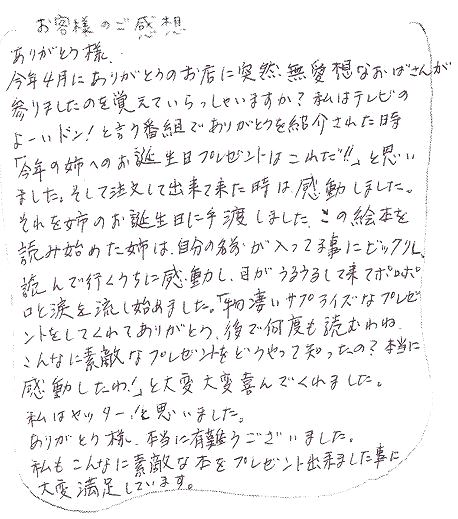 お客様のご感想
ありがとう様、
今年4月にありがとうのお店に突然無愛想なおばさんが
参りましたのを覚えていらっしゃいますか？私はテレビの
よーいドン！と言う番組でありがとうを紹介された時
「今年の姉へのお誕生日プレゼントはこれだ!!」と思い
ました。そして注文して出来て来た時は感動しました。
それを姉のお誕生日に手渡しました、この絵本を
読み始めた姉は、自分の名前が入ってる事にビックリし、
読んで行くうちに感動し、目がうるうるして来てポロポ
ロと涙を流し始めました。「物凄いサプライズなプレゼ
ントをしてくれてありがとう、後で何度も読むわね、
こんなに素敵なプレゼントをどうやって知ったの？本当に
感動したわ！」と大変大変喜んでくれました。
私はヤッター！と思いました。
ありがとう様、本当に有難うございました。
私もこんなに素敵な本をプレゼント出来ました事に
大変満足しています。